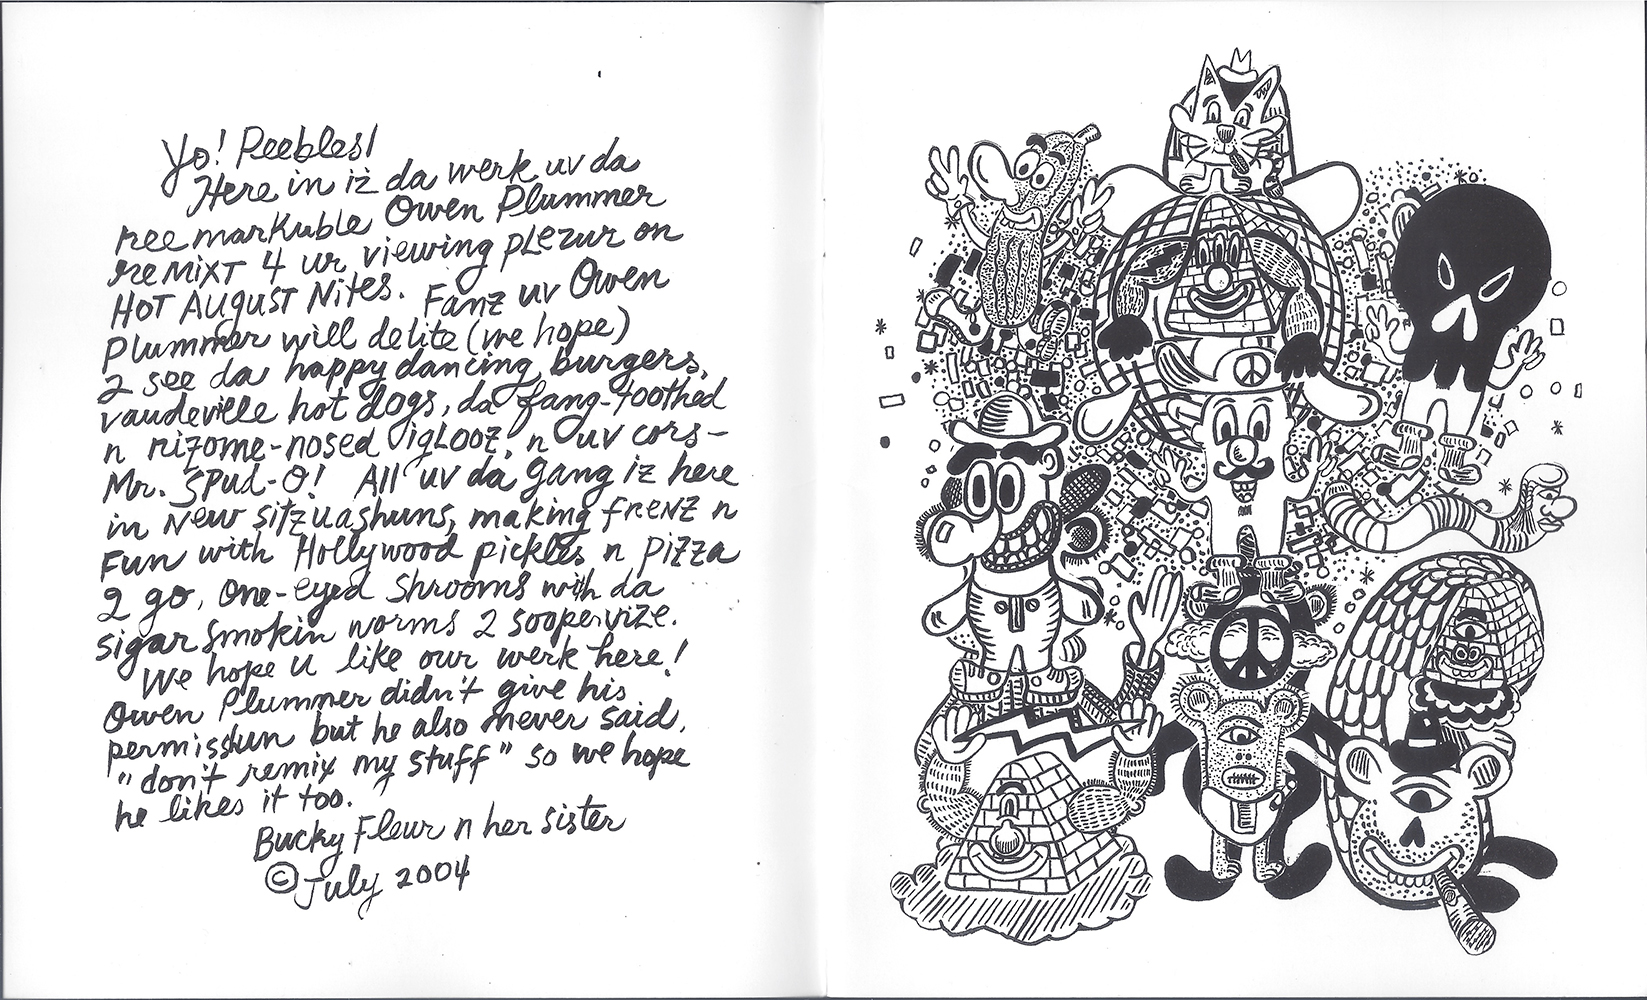 Yo! Peebles!
Here in iz da werk uv da
reemarkuble Owen Plummer
reMixT 4 ur viewing pLezur on
HOT AUGUST Nites. Fanz uv Owen
Plummer will delite (we hope)
2 see da happy dancing burgers,
vaudeville hot dogs, da fang-toothed
n rizome-nosed igLooz, n uv cors-
Mr. Spud-O! All uv da gang iz here
in New sitzuashuns, making frenz n
Fun with Hollywood pickles n pizza
2 go, One-eyed Shrooms with da
sigar smokin worms 2 soopervize.
We hope u like our werk here!
Owen Plummer didn't give his
permisshun but he also never said,
"don't remix my stuff" so we hope
he likes it too.
Bucky Fleur n her sister
© July 2004